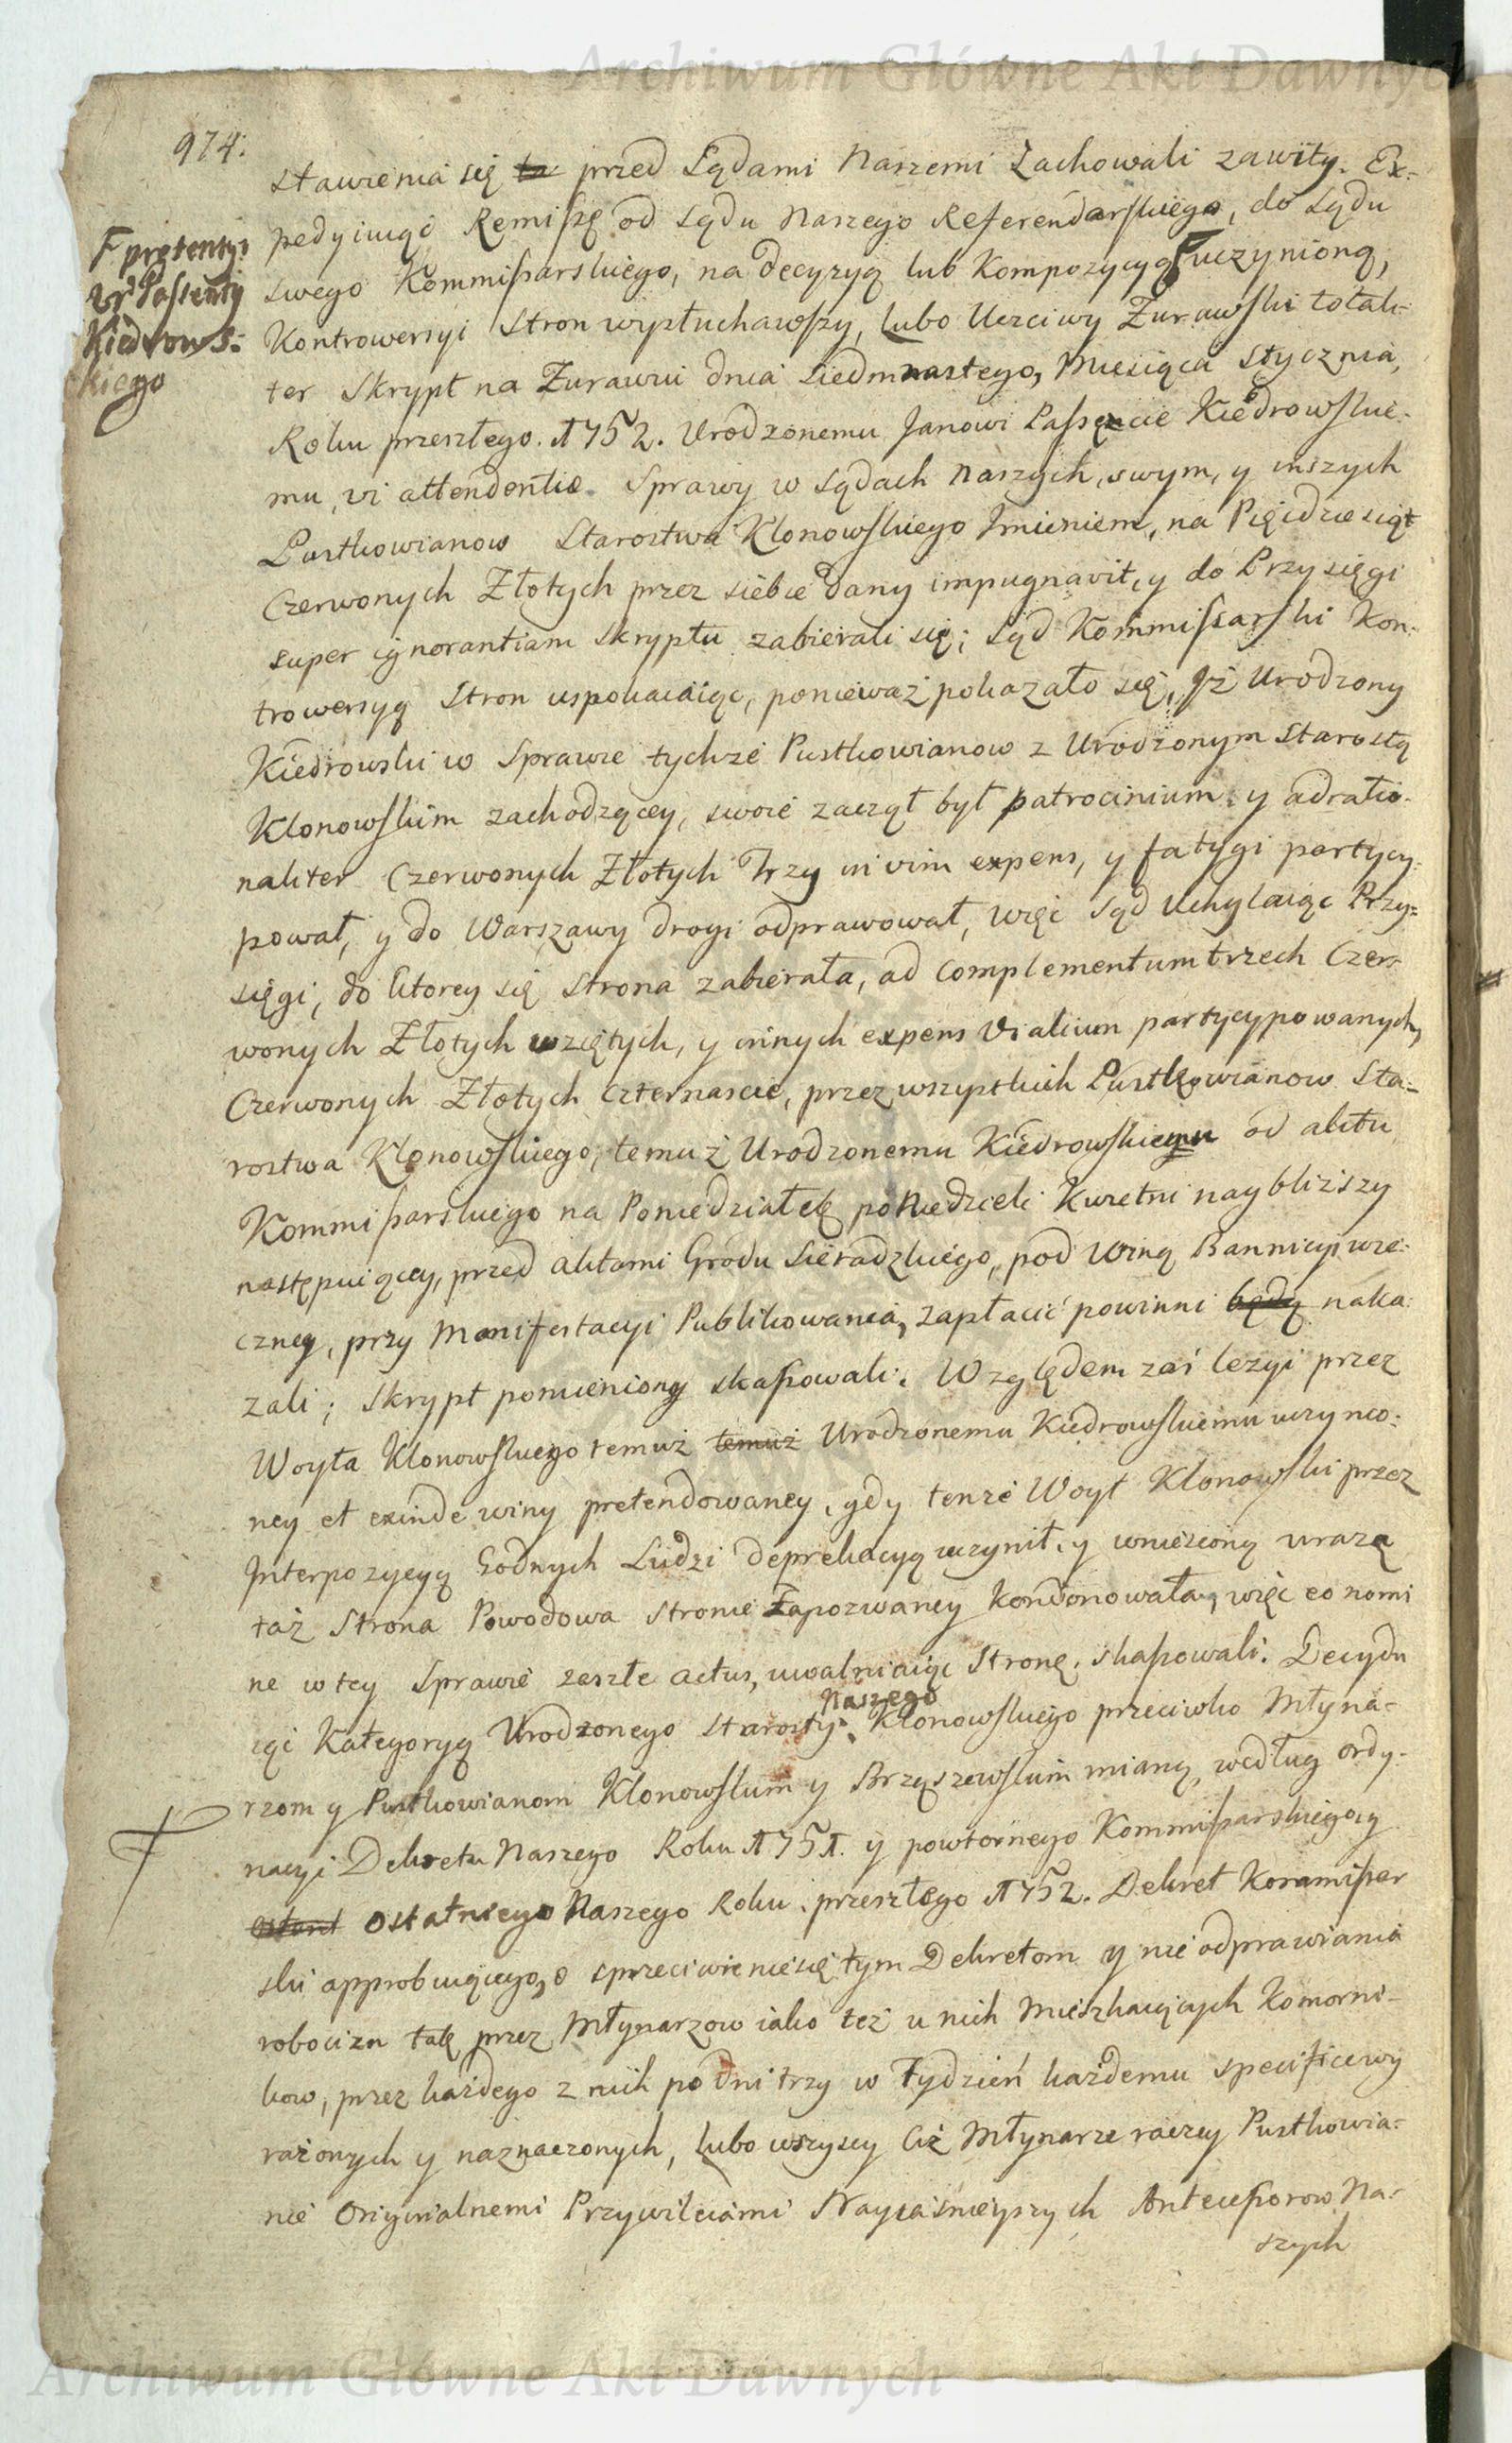 Archiwum Główne Akt Dawnych
974.
stawienia się ta przed Sądami Naszemi Zachowali zawity. Ex-
pedyiuiąć Remissę od Sądu Naszego Referendarskiego, do Sądu
F prętentyi
Ur Passenty
Kiedrows:
kiego
swego Kommissarskiego, na decyzyą lub Kompozycyą F uczynioną,
Kontrowersyi Stron wysłuchawszy, Lubo Uczciwy Zurawski totali-
ter Skrypt na Zurawni dnia Siedmnastego, Miesiąca Stycznia,
Roku przeszłego. 1752. Urodzonemu Janowi Passęcie Kiedrowskie-
mu, vi attendentiæ Sprawy w Sądach Naszych, swym, y inszych
Pustkowianow Starostwa Klonowskiego Imieniem, na Pięćdziesiąt
Czerwonych Złotych przez siebie dany impugnavit, y do Przysięgi
super ignorantiam skryptu zabierali się; Sąd Kommissarski Kon-
trowersyą Stron uspokaiaiąc, ponieważ pokazało się, Iż Urodzony
Kiedrowski w Sprawie tychże Pustkowianow z Urodzonym Starostą
Klonowskim zachodzącey, swoie zaczął był patrocinium y adratio-
naliter Czerwonych Złotych Trzy in vim expens, y fatygi partycy-
pował, y do Warszawy drogi odprawował, więc Sąd Uchylaiąc Przy-
sięgi, do ktorey się Strona zabierała, ad complementum trzech Czer-
wonych Złotych wziętych, y innych expens Vialium partycypowanych,
Czerwonych Złotych czternaście, przez wszystkich Pustkowianow Sta-
rostwa Klonowskiego, temuż Urodzonemu Kiedrowskiemu od aktu
Kommissarskiego na Poniedziałek po Niedzieli Kwietni naybliższy
następuiącey, przed aktami Grodu Sieradzkiego, pod winą Bannicyi wie-
czney, przy Manifestacyi Publikowania, zapłacić powinni będą naka-
zali; Skrypt pomieniony skassowali. Względem zaś lezyi przez
Woyta Klonowskiego temuż temuż Urodzonemu Kiedrowskiemu uczynio-
ney et exinde winy pretendowaney, gdy tenże Woyt Klonowski przez
Interpozycyą Godnych Ludzi deprekacyą uczynił, y wniesioną urazę
taż Strona Powodowa Stronie Zapozwaney kondonowała, więc eo nomi
ne w tey Sprawie zeszłe actus, uwalniaiąc Stronę, skassowali. Decydu
iąc Kategoryą Urodzonego Starosty Naszego Klonowskiego przeciwko Młyna-
rzom y Pustkowianom Klonowskim y Brzęszewskim mianą, według ordy-
nacyi Dekretu Naszego Roku 1751. y powtornego Kommissarskiego, y
ostat ostatniego Naszego Roku przeszłego 1752. Dekret Kommissar
ski approbuiącego, o sprzeciwienie się tym Dekretom y nie odprawiania
robocizn tak przez Młynarzow iako też u nich Mieszkaiących Komorni-
kow, przez każdego z nich po dni trzy w Tydzień każdemu specifice wy
rażonych y naznaczonych, Lubo wszyscy Ciż Młynarze raczey Pustkowia-
nie Originalnemi Przywileiami Nayiaśnieyszych Antecessorow Na-
szych
Archiwum Główne Akt Dawnych